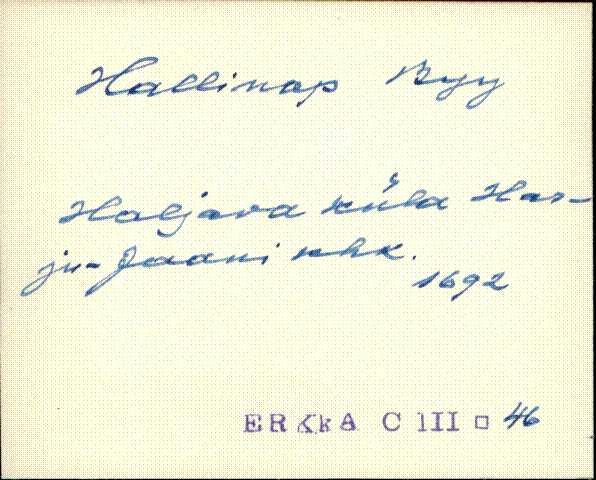 Hallinap Byy
Haljava küla Har-
ju-Jaani khk.
1692
ERKkA C III □ 46